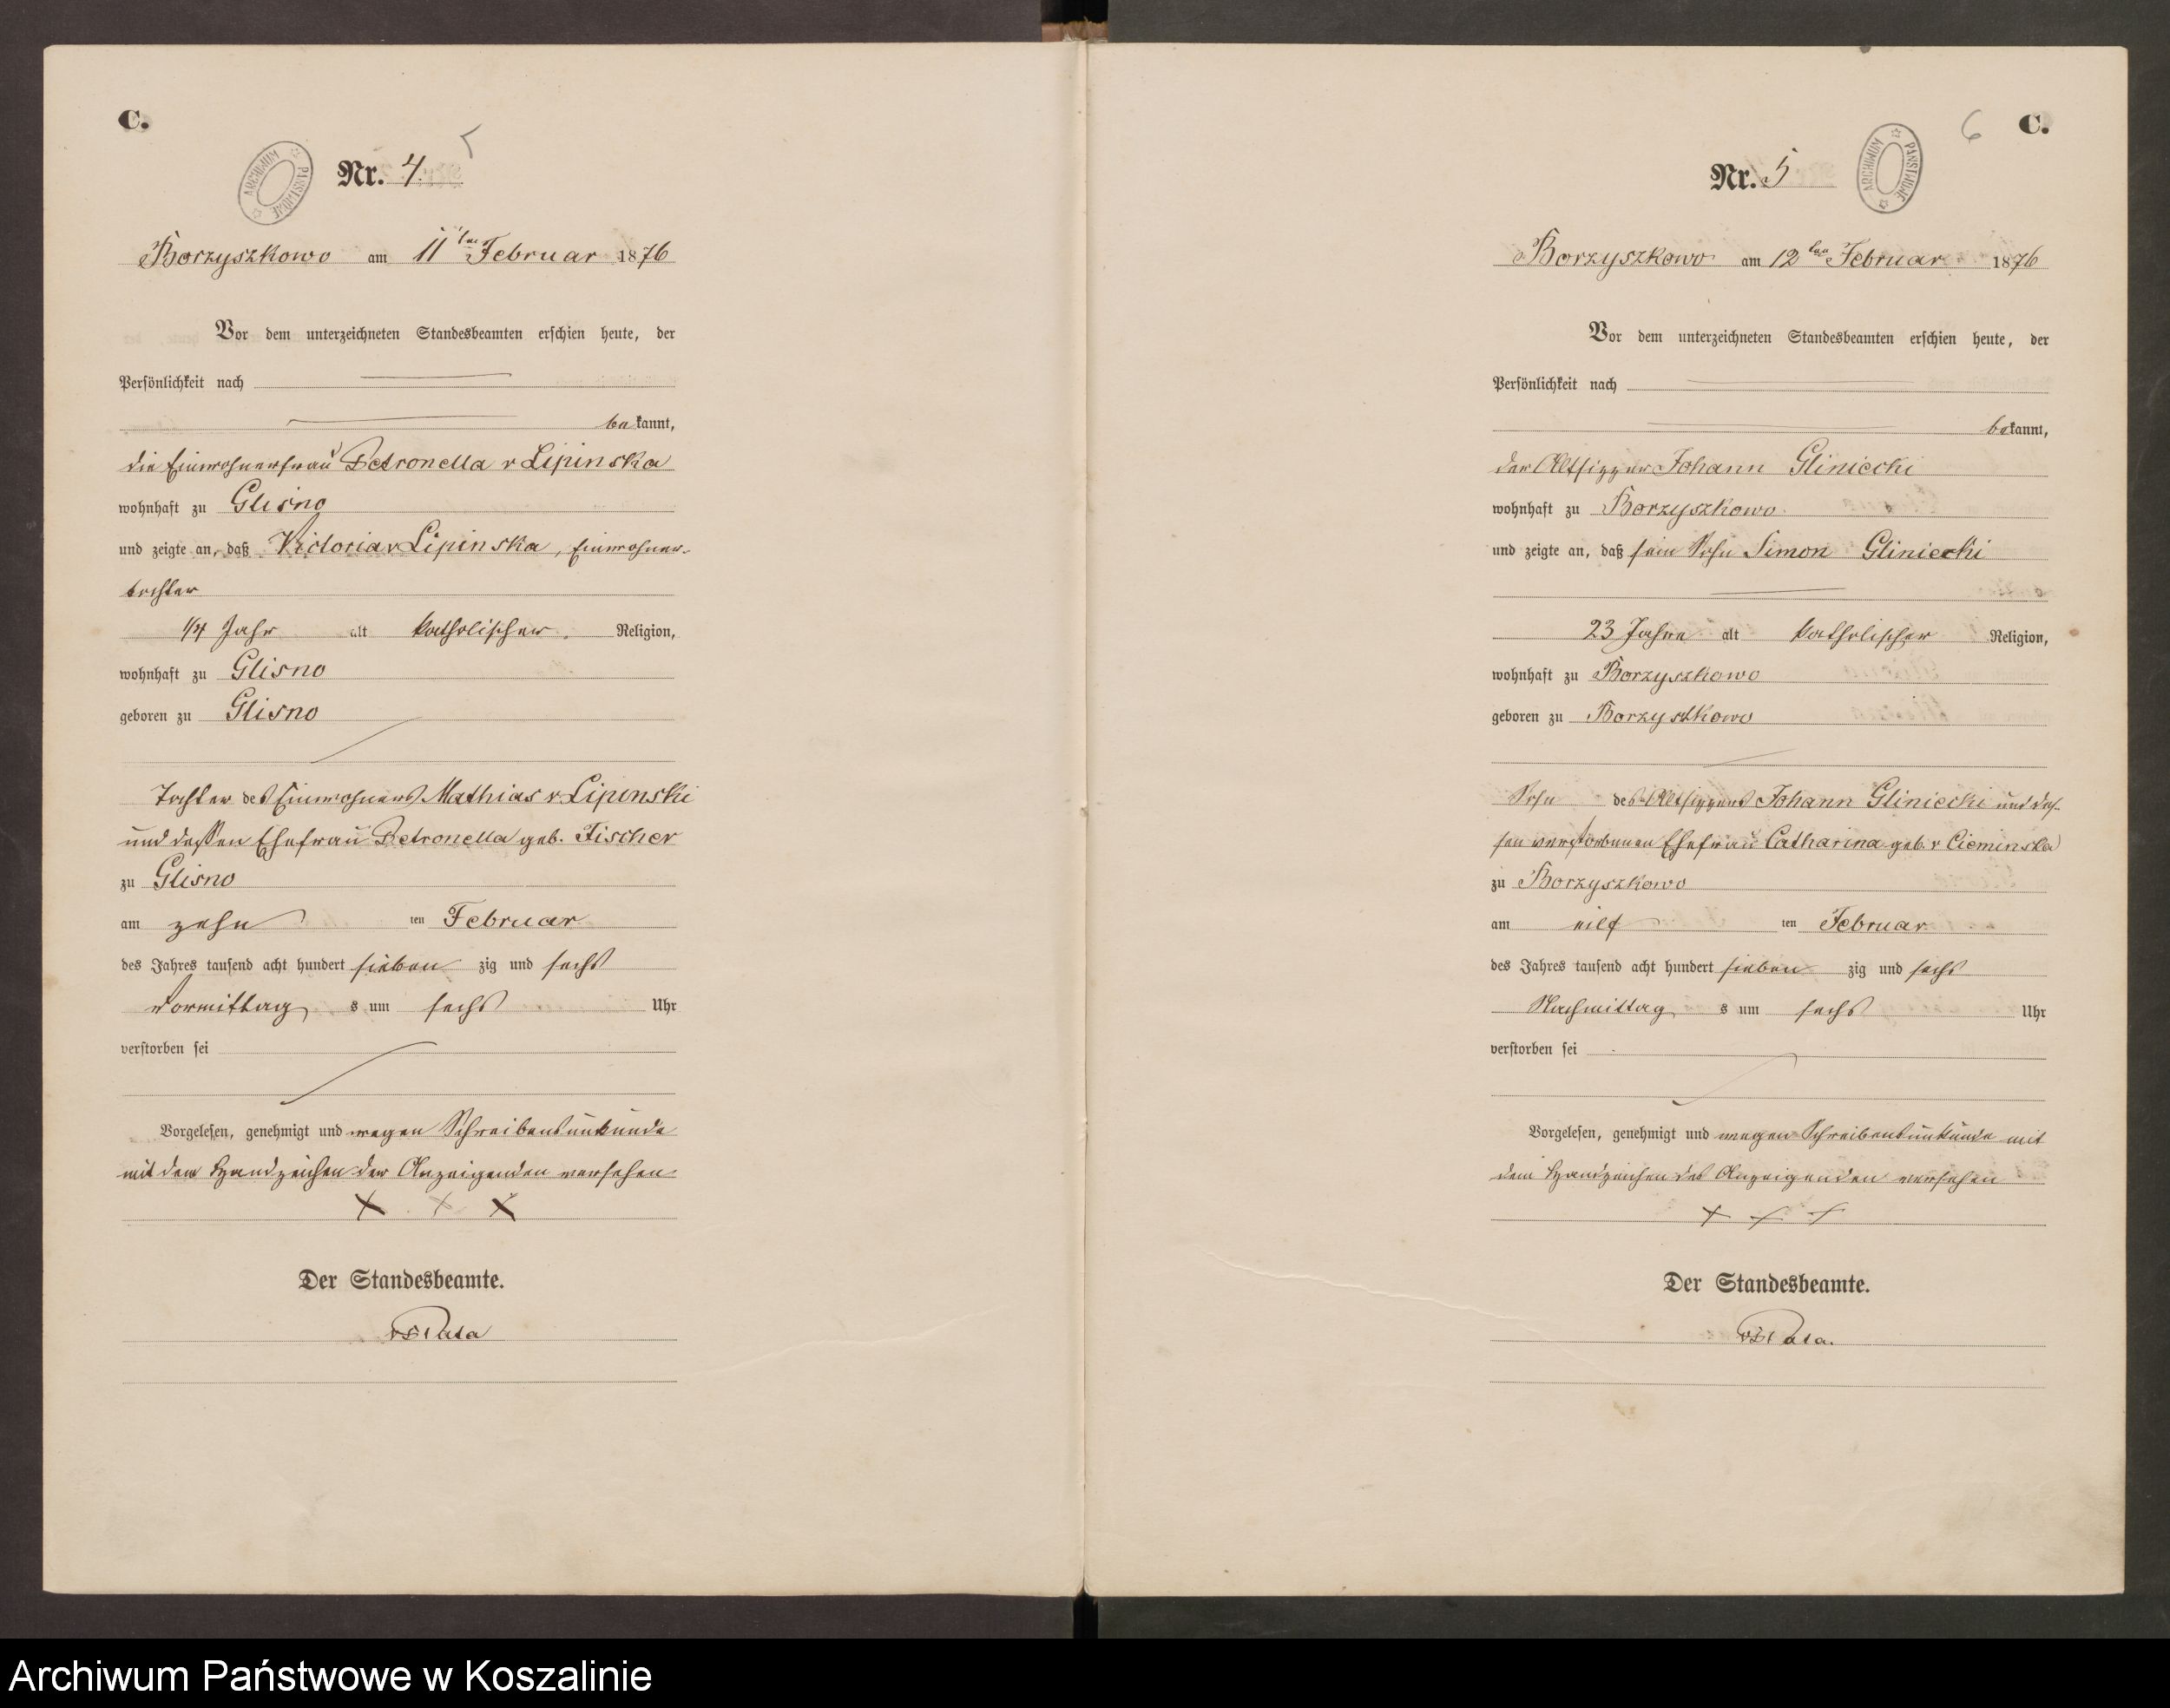 C.
ARCHIWUM PAŃSTWOWE
5
Nr. 4.
Borzyszkowo am 11ten Februar 1876
Vor dem unterzeichneten Standesbeamten erschien heute, der
Persönlichkeit nach
bekannt,
die Einwohnerfrau Petronella v Lipinska
wohnhaft zu Glisno
und zeigte an, daß Victoria v Lipinska, Einwohner-
tochter
1/4 Jahr alt katholischer Religion,
wohnhaft zu Glisno
geboren zu Glisno
Tochter des Einwohners Mathias v Lipinski
und dessen Ehefrau Petronella geb. Fischer
zu Glisno
am zehn ten Februar
des Jahres tausend acht hundert sieben zig und sechs
Vormittag s um sechs Uhr
verstorben sei
Vorgelesen, genehmigt und wegen Schreibensunkunde
mit dem Handzeichen der Anzeigenden versehen
X X X
Der Standesbeamte.
6 C.
ARCHIWUM PAŃSTWOWE
Nr. 5
Borzyszkowo am 12ten Februar 1876
Vor dem unterzeichneten Standesbeamten erschien heute, der
Persönlichkeit nach
bekannt,
der Altsitzer Johann Gliniecki
wohnhaft zu Borzyszkowo
und zeigte an, daß sein Sohn Simon Gliniecki
23 Jahre alt katholischer Religion,
wohnhaft zu Borzyszkowo
geboren zu Borzyszkowo
Sohn des Altsitzers Johann Gliniecki und des-
sen verstorbenen Ehefrau Catharina geb. v Cieminska
zu Borzyszkowo
am eilf ten Februar
des Jahres tausend acht hundert sieben zig und sechs
Nachmittag s um sechs Uhr
verstorben sei
Vorgelesen, genehmigt und wegen Schreibensunkunde mit
dem Handzeichen des Anzeigenden versehen
X X X
Der Standesbeamte.
Archiwum Państwowe w Koszalinie